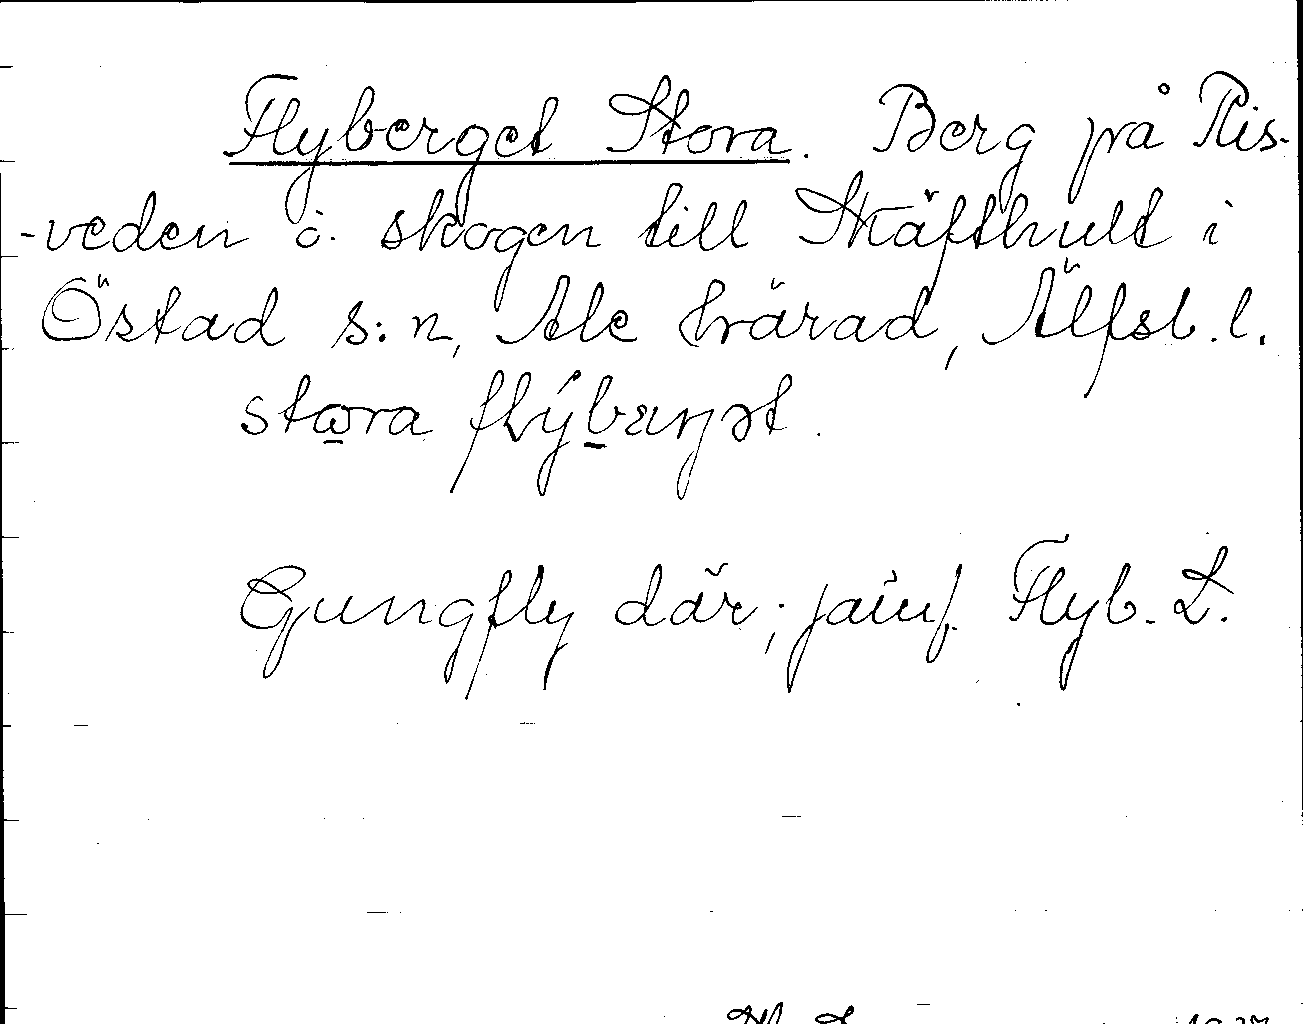 Flyberget Stora. Berg på Ris-
-veden ö. skogen till Skäfthult i
Östad s:n, Ale härad, Älfsb. l.
Gungfly där; jämf. Flyb. L.